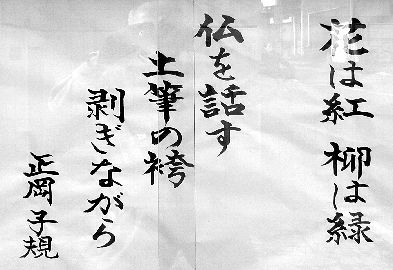 花は紅 柳は緑
仏を話す
土筆の袴
剥ぎながら
正岡子規